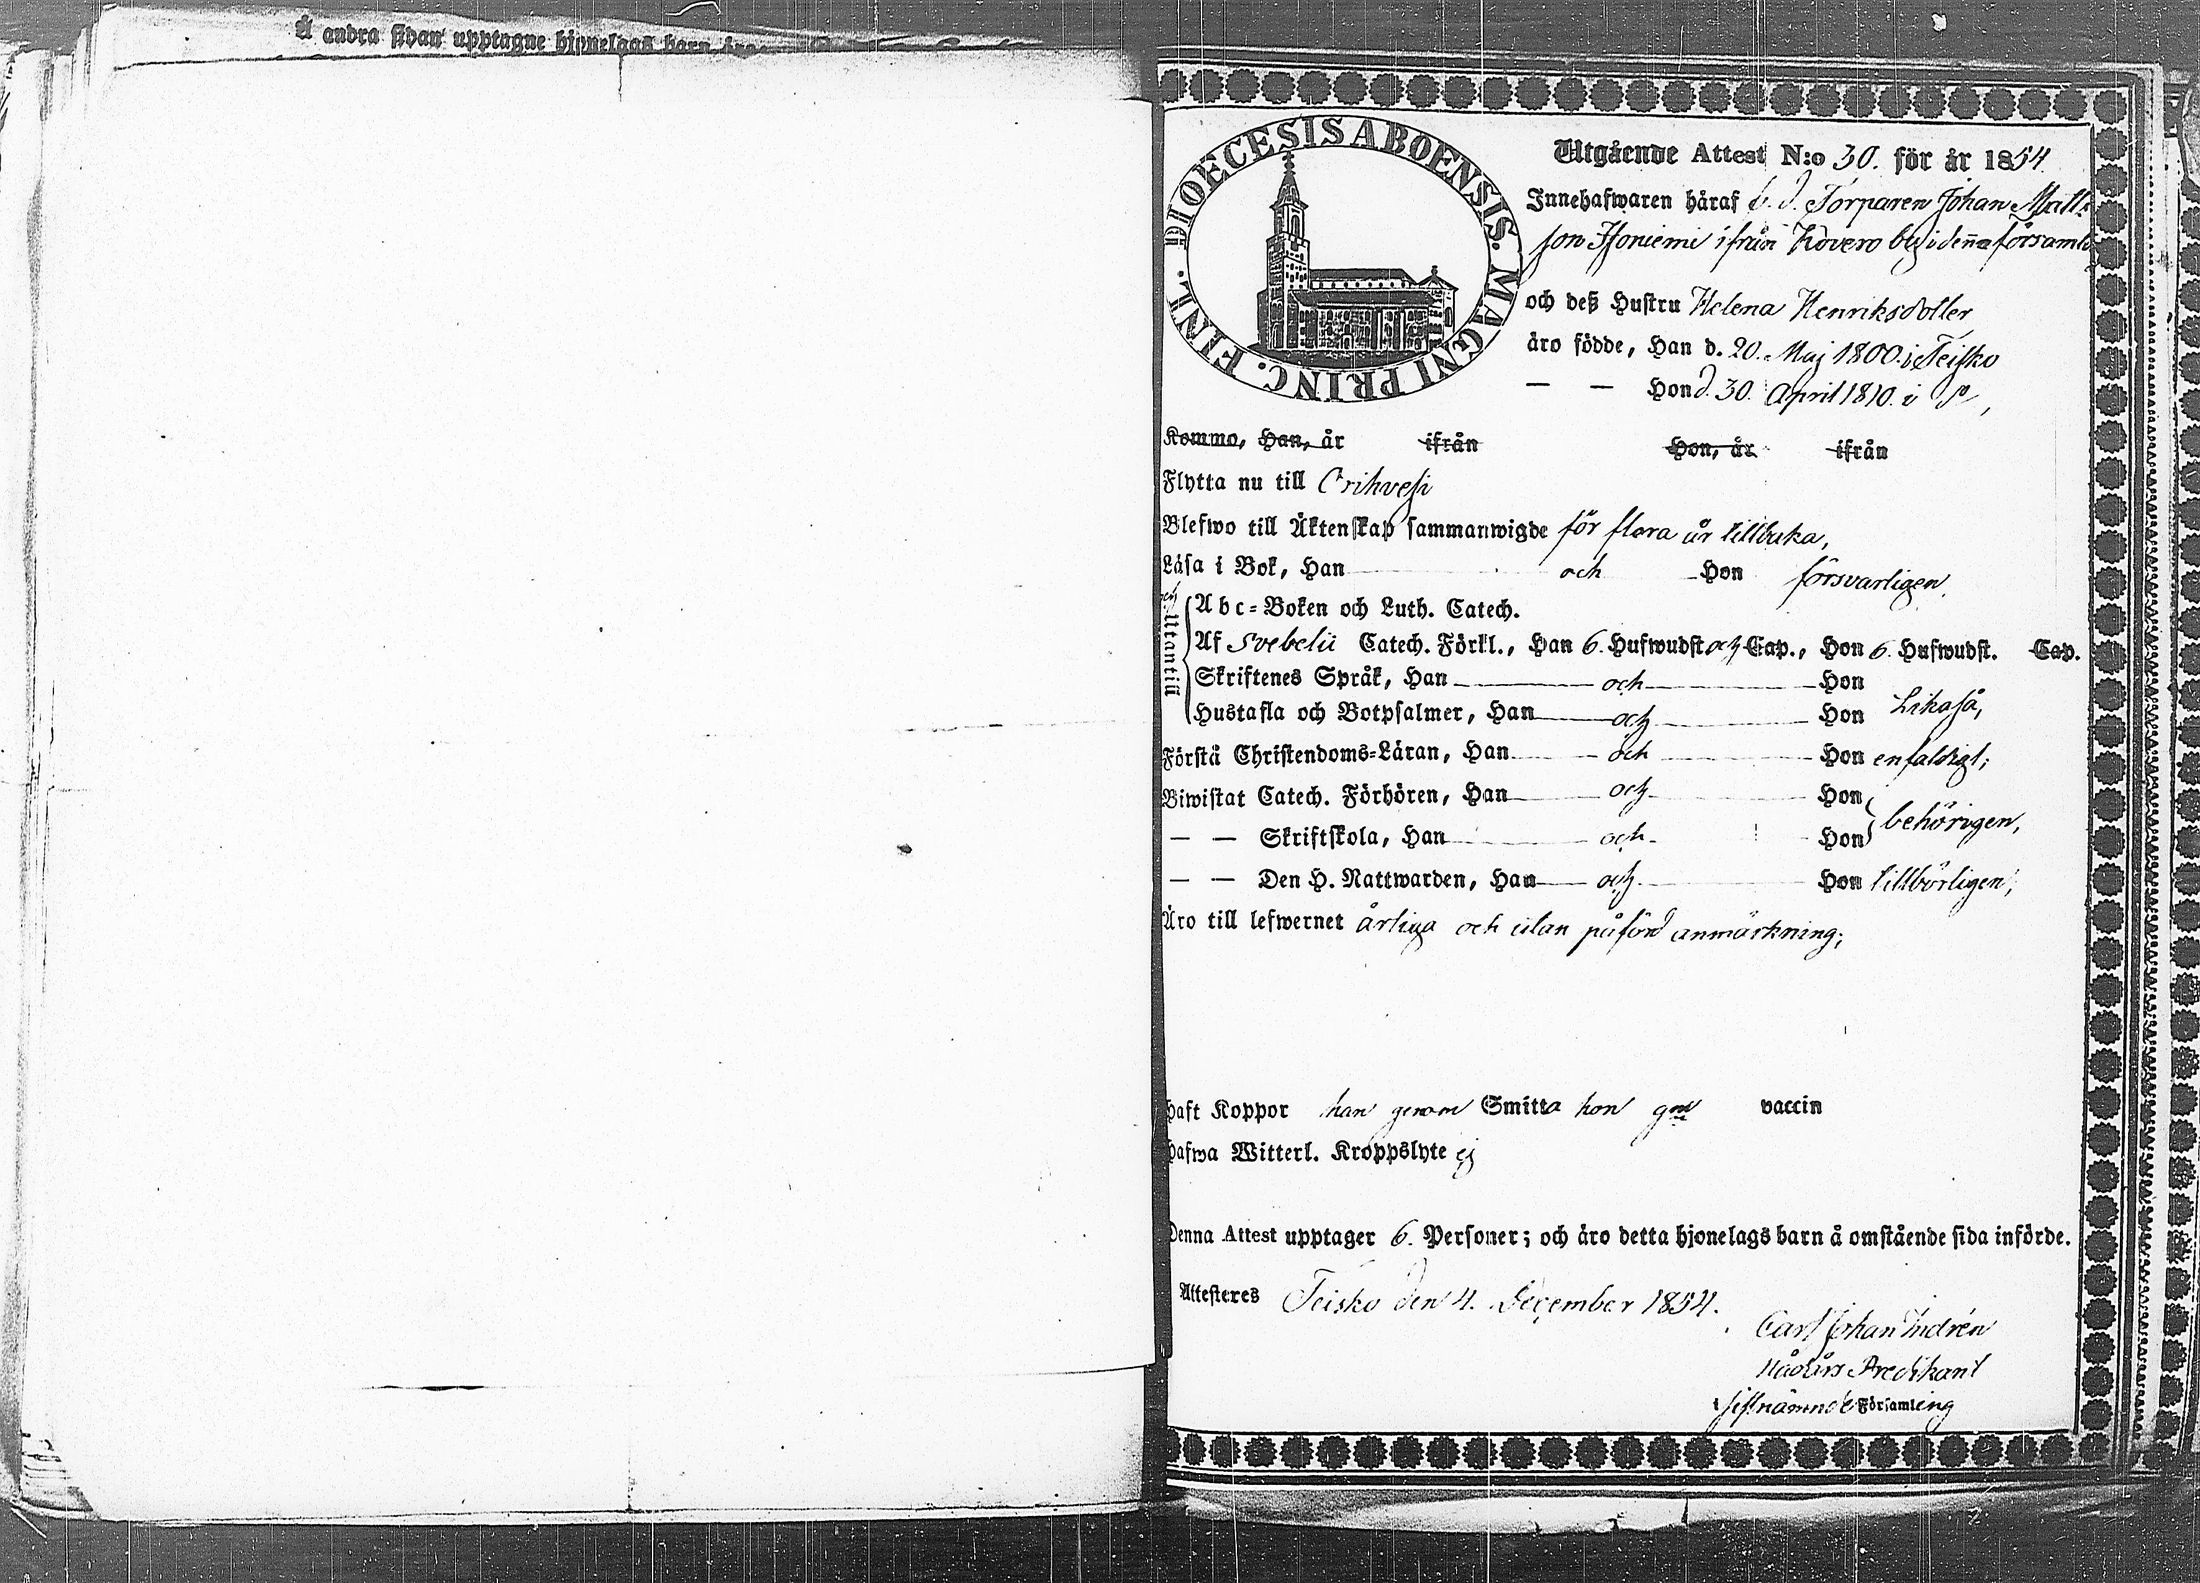 Å andra sidan upptagne hjonelags barn äro
DIOECESIS ABOENSIS. MAGNI PRINC. FINL.
Utgående Attest N:o 30. för år 1854.
Innehafwaren häraf f. d. Torparen Johan Matts
son Isoniemi ifrån Kovero by i denna församl.
och deß Hustru Helena Henriksdotter
äro födde, Han d. 20. Maj 1800. i Teisko
— — Hon d. 30. April 1810. i
Kommo, Han, år ifrån Hon, år ifrån
Flytta nu till Orihvesi
Blefwo till Äktenskap sammanwigde för flera år tillbaka,
Läsa i Bok, Han och Hon försvarligen,
och Utantill
Abc-Boken och Luth. Catech.
Af Svebelii Catech. Förkl., Han 6. Hufwudst. och Cap., Hon 6. Hufwudst. Cap.
Skriftenes Språk, Han och Hon
Likaså,
Hustafla och Botpsalmer, Han och Hon
Förstå Christendoms-Läran, Han och Hon enfaldigt;
Biwistat Catech. Förhören, Han och Hon
behörigen,
— — Skriftskola, Han och Hon
— — Den H. Nattwarden, Han och Hon tillbörligen;
Äro till lefwernet ärliga och utan påförd anmärkning;
Haft Koppor han genom Smitta hon gm vaccin
Hafwa Witterl. Kroppslyte ej
Denna Attest upptager 6. Personer; och äro detta hjonelags barn å omstående sida införde.
Attesteres Teisko den 4. December 1854.
Carl Johan Indrén
Nådårs Predikant
i sistnämnde Församling